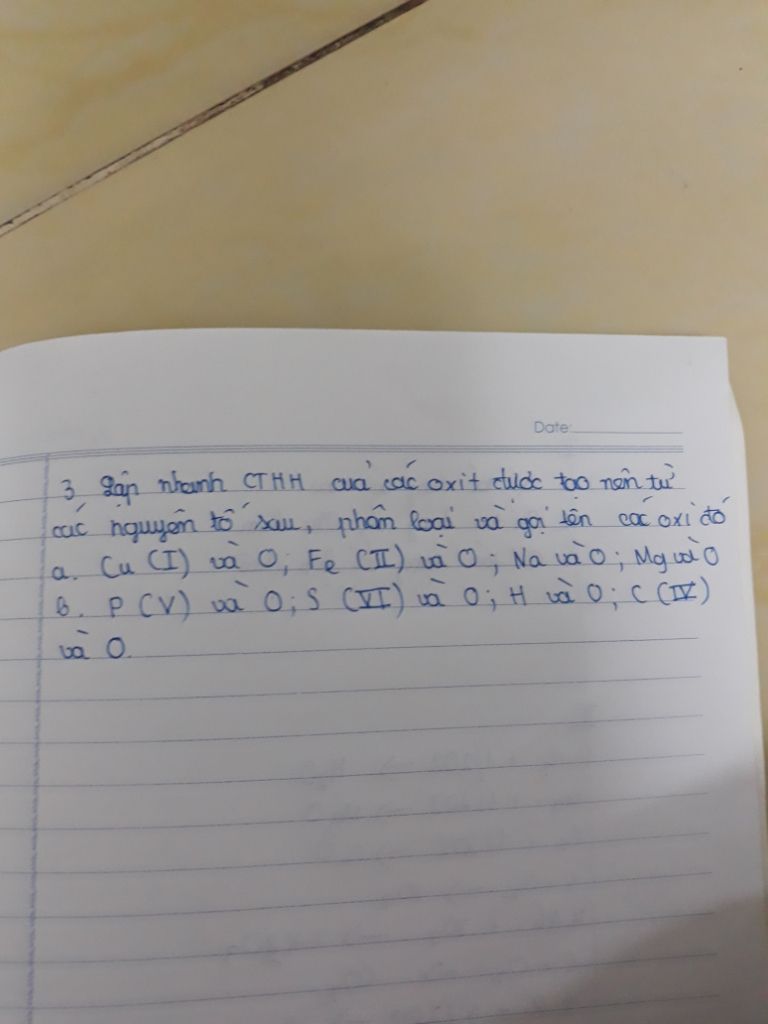 Date:
3 Lập nhanh CTHH cuả các oxit được tạo nên từ
các nguyên tố sau, phân loại và gọi tên các oxi đó
a. Cu (I) và O; Fe (II) và O; Na và O; Mg và O
b. P (V) và O; S (VI) và O; H và O; C (IV)
và O.